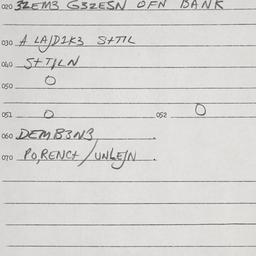 020 32EM3 G3ZESN OFN BANK
030 A LAJD1K3 S+TIL
040 S+TJLN
050 O
051 O 052 O
060 DEMB3N3
070 PO,RENC+/UNLEJN.